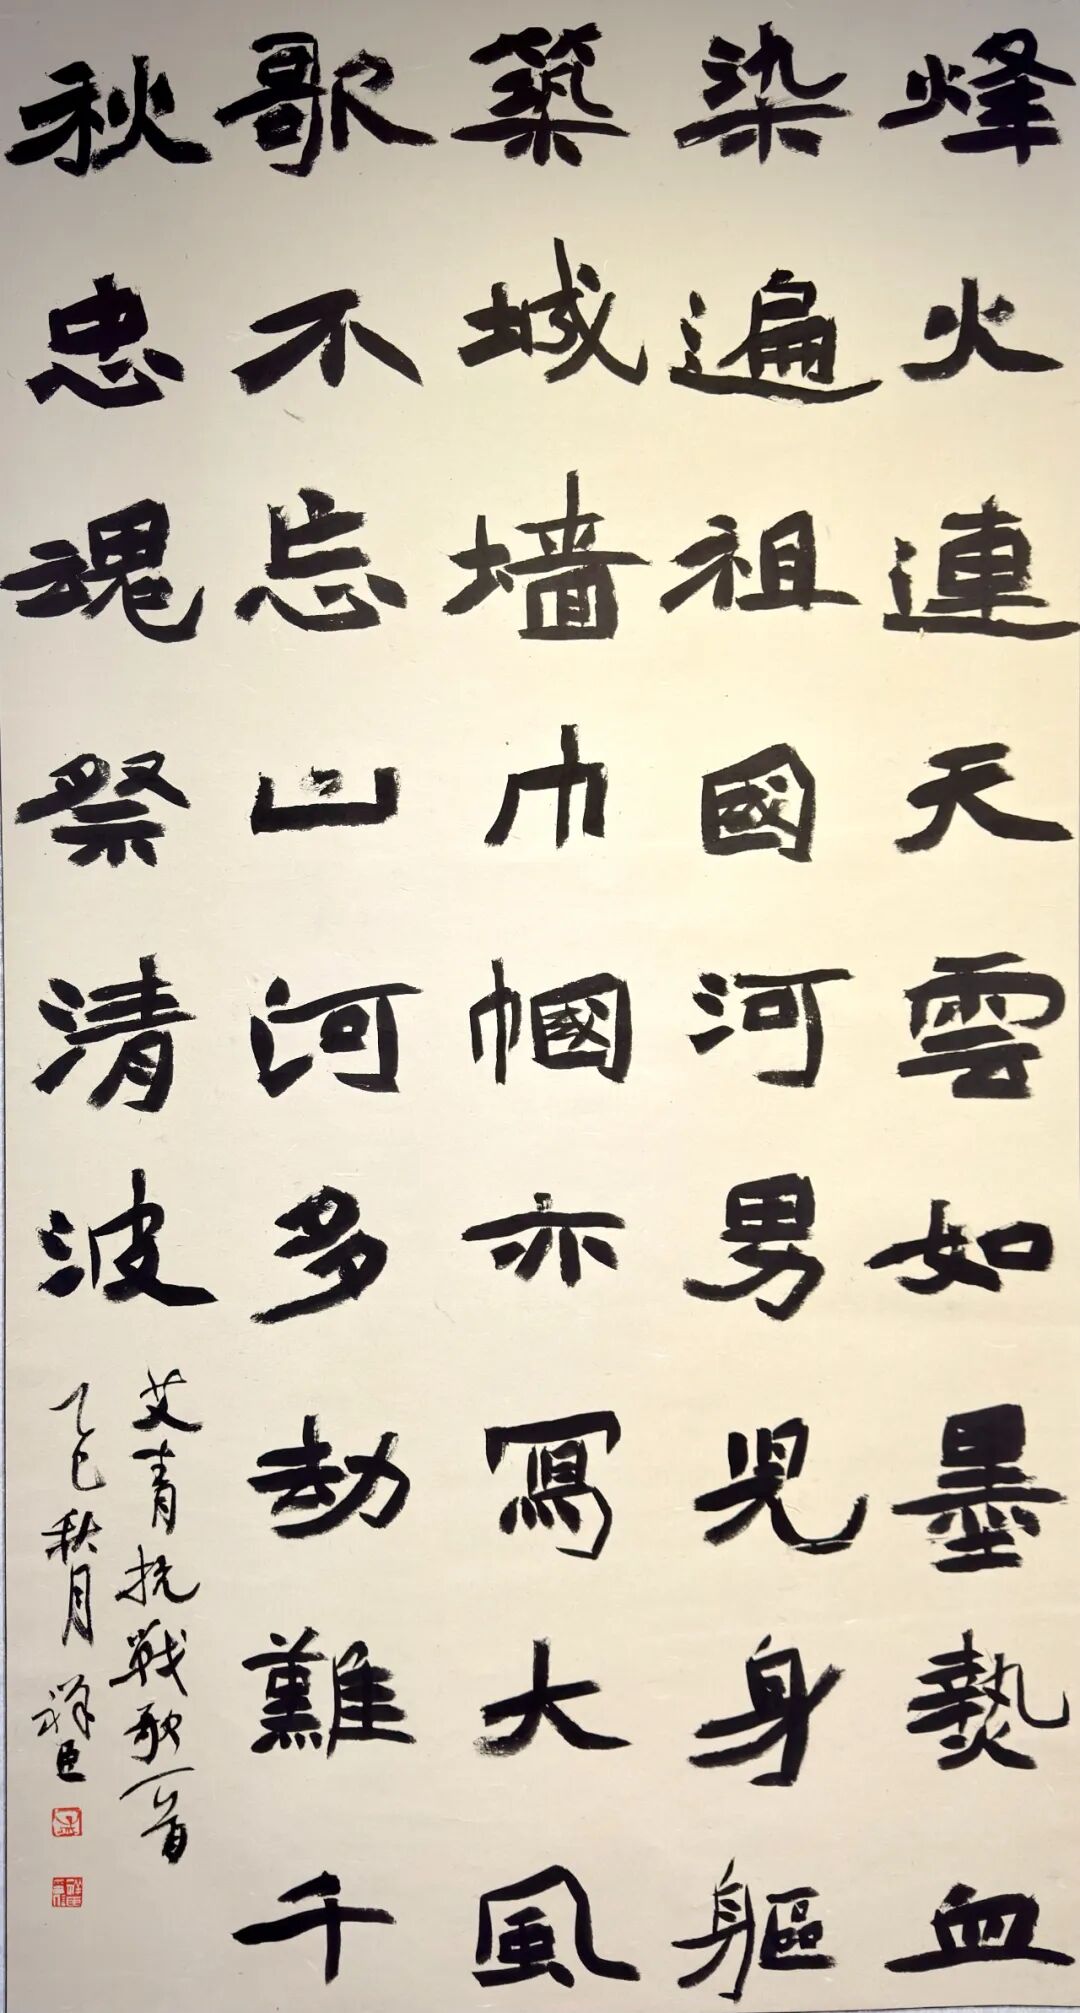 烽火連天雲如墨熱血
染遍祖國河男兒身軀
築城墙巾帼亦寫大風
歌不忘山河多劫難千
秋忠魂祭清波
艾青抗戰歌一首
乙巳秋月祥臣